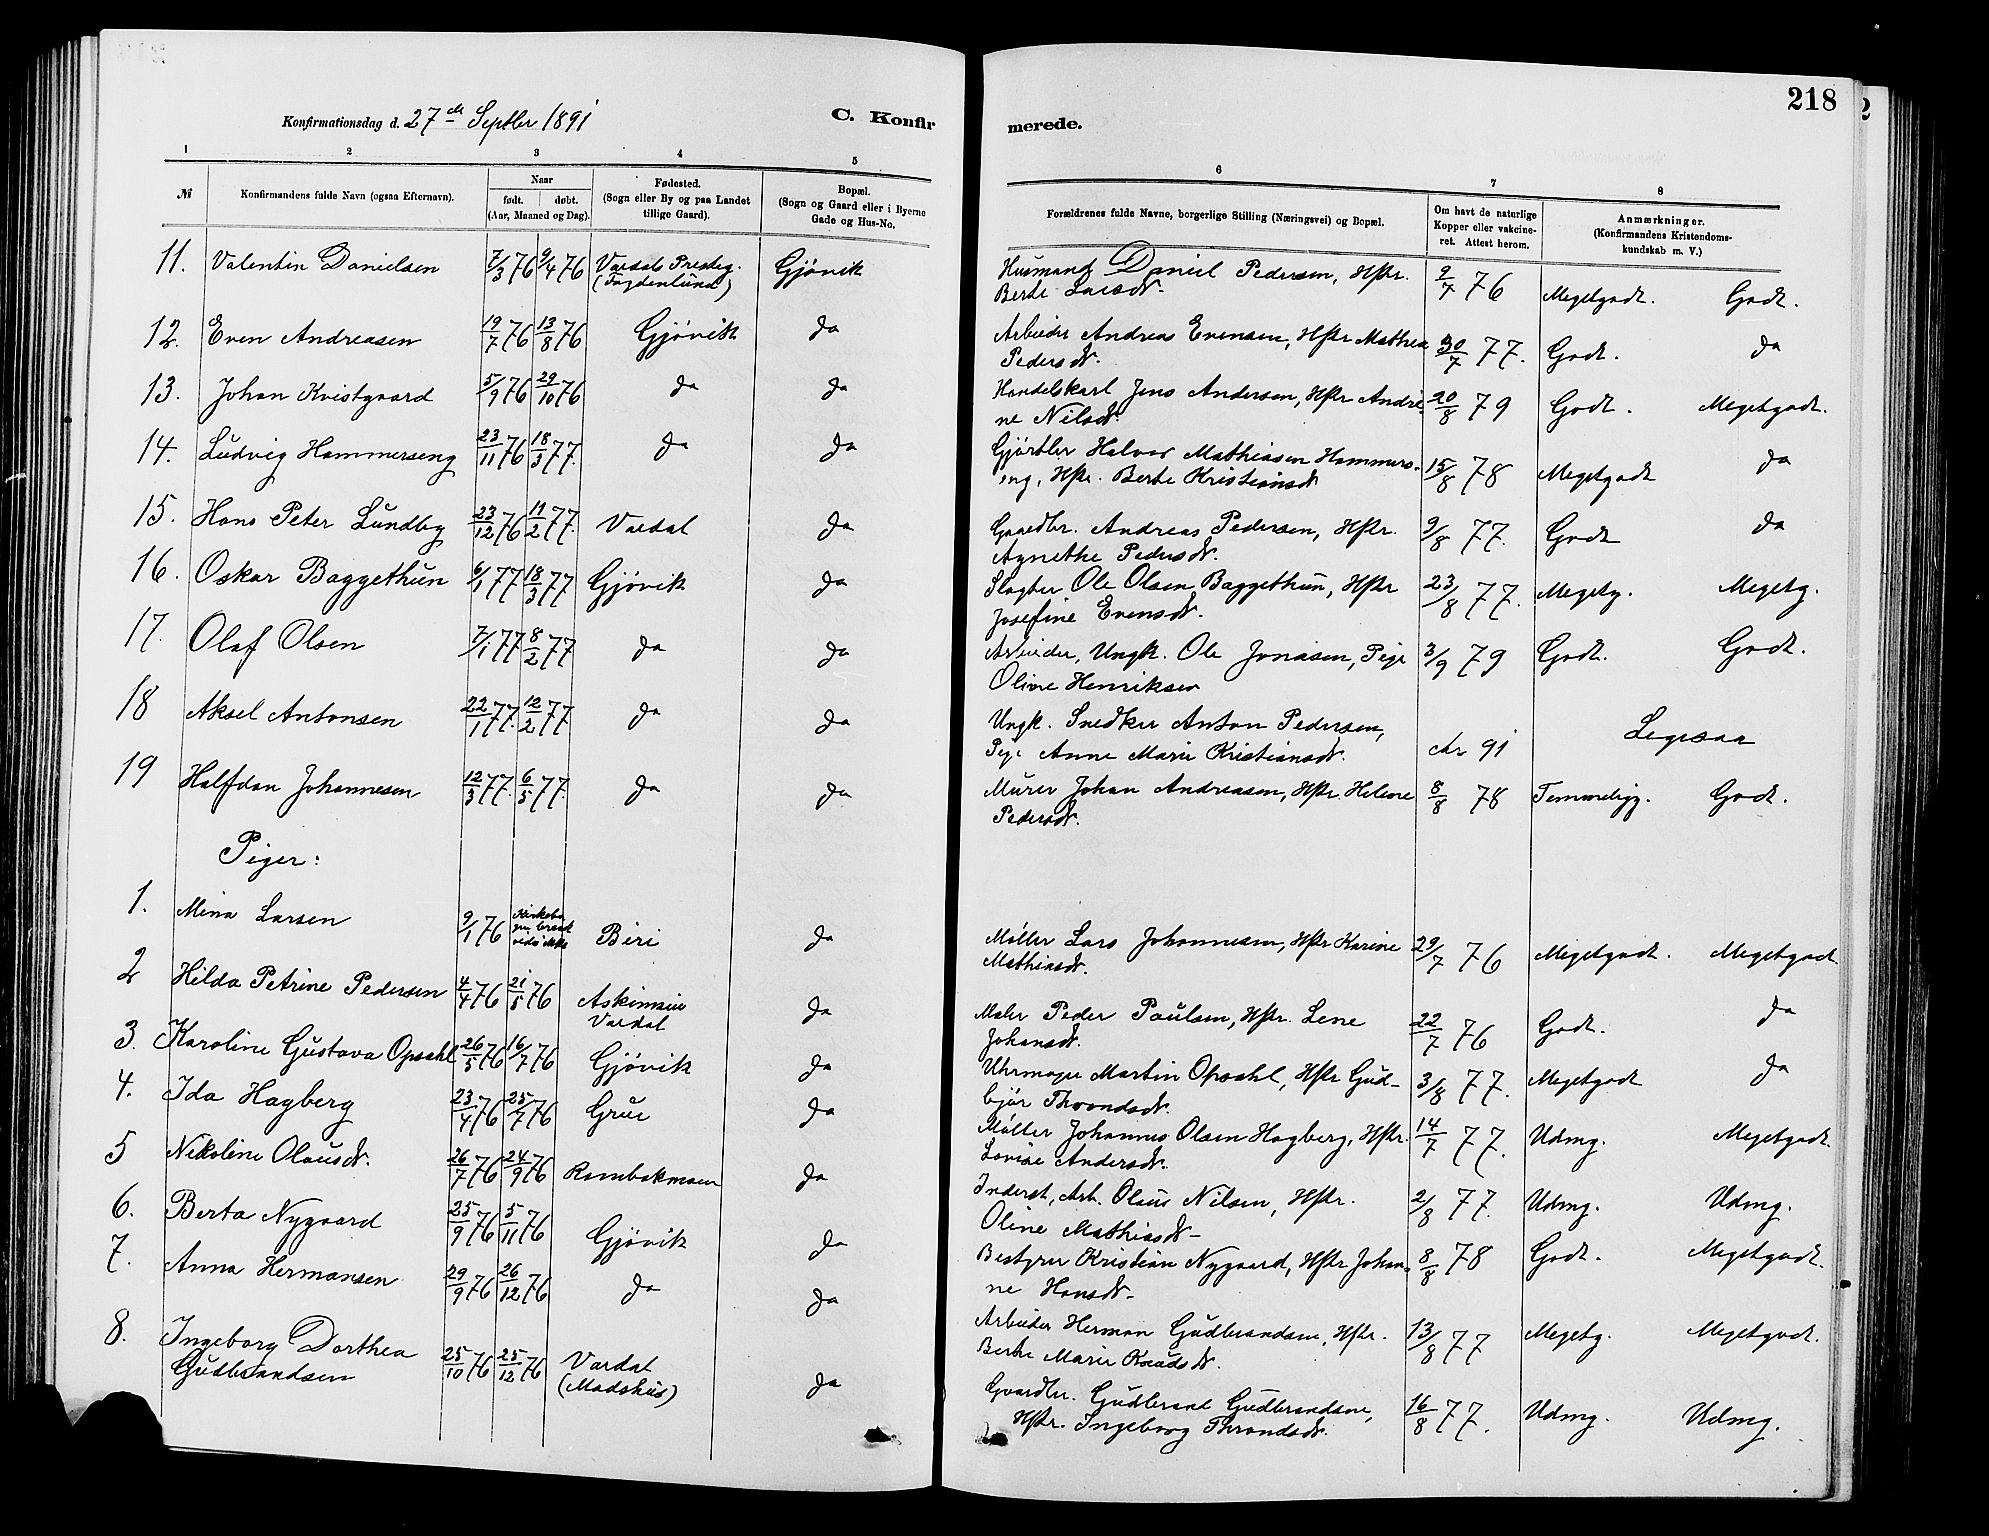 218
Konfirmationsdag d. 27de Septber 1891
C. Konfir
merede.
1 2 3 4 5 6 7 8
№ Konfirmandens fulde Navn (ogsaa Efternavn). Naar født. døbt. (Aar, Maaned og Dag). Fødested. (Sogn eller By og paa Landet tillige Gaard). Bopæl. (Sogn og Gaard eller i Byerne Gade og Hus-No. Forældrenes fulde Navne, borgerlige Stilling (Næringsvei) og Bopæl. Om havt de naturlige Kopper eller vakcineret. Attest herom. Anmærkninger. (Konfirmandens Kristendomskundskab m. V.)
11. Valentin Danielsen 7/3 76 9/4 76 Vardal Presteg. Gjøvik Husmand Daniel Pedersen, Hstr. Berte Larsdt. 9/7 76 Megetgodt. Godt.
12. Even Andreasen 19/7 76 13/8 76 Gjøvik do Arbeider Andreas Evensen, Hstr Mathea Pedersdt. 30/7 77. Godt. do
13. Johan Kvistgaard 5/9 76 29/10 76 do do Handelskarl Jens Andersen, Hstr Andrine Nilsdt. 20/8 79 Godt. Megetgodt.
14. Ludvig Hammerseng 23/11 76 18/3 77. do do Gjørtler Halvor Mathiasen Hammerseng, Hstr. Berte Kristiansdt 15/8 78 Megetgodt do
15. Hans Peter Lundby 23/12 76 11/2 77. Vardal do Gaardbr. Andreas Pedersen, Hstr. Agnethe Pedersdt. 9/8 77. Godt do
16. Oskar Baggethun 6/1 77 18/3 77 Gjøvik do Slagter Ole Olsen Baggethun, Hstr Josefine Evensdt. 23/8 77. Megetg. Megetg.
17. Olaf Olsen 7/1 77 8/2 77 do do Arbeider, Ungk. Ole Jonasen, Pige Oline Henriksen 3/9 79 Godt. Godt.
18 Aksel Antonsen 22/1 77. 12/2 77 do do Ungk. Snedker Anton Pedersen, Pige Anne Marie Kristiansdt. 91
19 Halfdan Johannesen 12/3 77. 6/5 77. do do Murer Johan Andreasen, Hstr. Helene Pedersdt. 8/8 78 Temmeligg. Godt.
Piger:
1. Mina Larsen 9/1 76 Biri do Møller Lars Johannesen, Hstr Karine Mathiasdt. 29/7 76 Megetgodt. Megetgodt
2 Hilda Petrine Pedersen 4/4 76 21/5 76 Vardal do Maler Peder Paulsen, Hstr. Lene Johansdt. 22/7 76 Godt. do
3. Karoline Gustava Opsahl 26/5 76 16/7 76 Gjøvik do Uhrmager Martin Opsahl, Hstr Gudbjør Throndsdt. 3/8 77. Megetgodt do
4. Ida Hagberg 23/4 76 25/7 76 Grue do Møller Johannes Olsen Hagberg, Hstr. Lovise Andersdt. 14/7 77. Udmg. Megetgodt.
5 Nikoline Olausdt. 26/7 76 24/9 76 Rambakmoen do Inderst, Arb. Olaus Nilsen, Hstr. Oline Mathiasdt 2/8 77. Udmg. Udmg.
6. Berta Nygaard 25/9 76 5/11 76 Gjøvik do Bestyrer Kristian Nygaard, Hstr Johanne Hansdt 8/8 78 Godt. Megetgodt.
7. Anna Hermansen 29/9 76 26/12 76 do do Arbeider Herman Gudbrandsen, Hstr. Berte Marie Knudsdt. 13/8 77 Megetg. Megetgodt.
8. Ingeborg Dorthea Gudbrandsen 25/10 76 25/12 76 Vardal (Madshus) do Gaardbr. Gudbrand Gudbrandsen, Hstr. Ingeborg Throndsdt. 16/8 77. Udmg. Udmg.